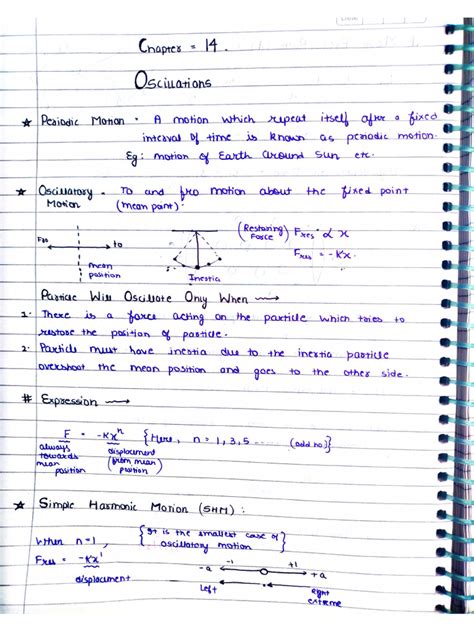 Chapter = 14.
Oscillations
★ Periodic Motion - A motion which repeat itself after a fixed
interval of time is known as periodic motion.
Eg: motion of Earth around Sun etc.
★ Oscillatory - To and fro motion about the fixed point
Motion (mean point).
(Restoring Force) Fres ∝ x
Fro to
Fres = -Kx
mean position
Inertia
Particle Will Oscillate Only When ⟶
1. There is a force acting on the particle which tries to
restore the position of particle.
2. Particle must have inertia due to the inertia particle
overshoot the mean position and goes to the other side.
# Expression ⟶
F = -Kxⁿ {Here, n = 1, 3, 5 ...... (odd no)}
always towards mean position
displacement (from mean position)
★ Simple Harmonic Motion (SHM) :
When n=1, {It is the smallest case of oscillatory motion}
Fres = -Kx¹
displacement
-a -1 +1 +a
Left Right extreme